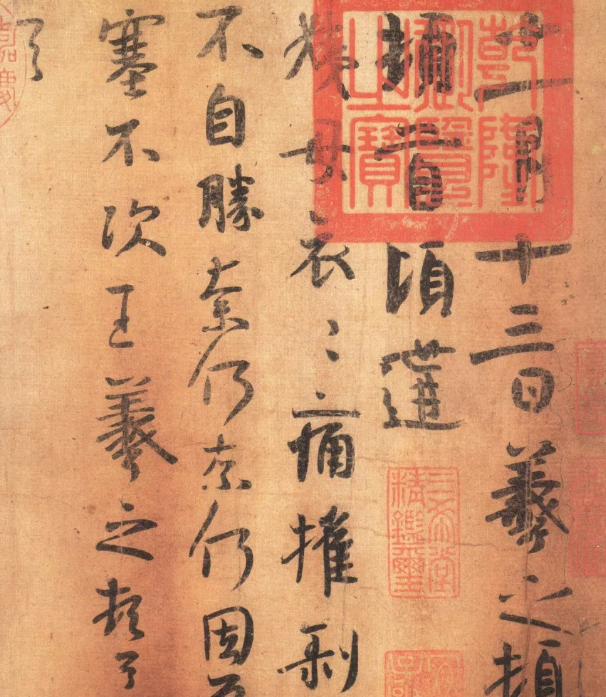 十一月十三日羲之頓
頓首頃遘
姨母哀〻痛摧剥
不自勝奈何奈何因反
塞不次王羲之頓首
乾隆御覽之寶
三希堂精鑑璽
嘉慶